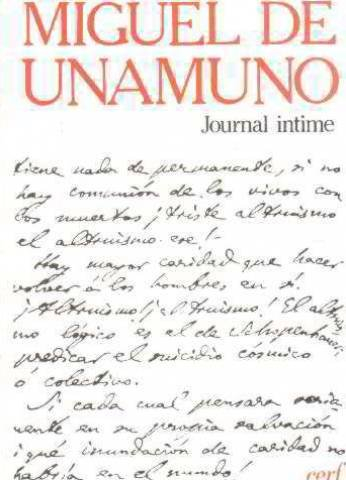 MIGUEL DE
UNAMUNO
Journal intime
tiene nada de permanente, si no
hay comunión de los vivos con
los muertos ¡triste altruismo
el altruismo ese!
Hay mayor caridad que hacer
volver á los hombres en sí.
¡Altruismo! ¡altruismo! El altruis
mo lógico es el de Schopenhauer,
predicar el suicidio cósmico
ó colectivo.
Si cada cual pensara seria
mente en su propia salvación
¡qué inundación de caridad no
habría en el mundo!
cerf